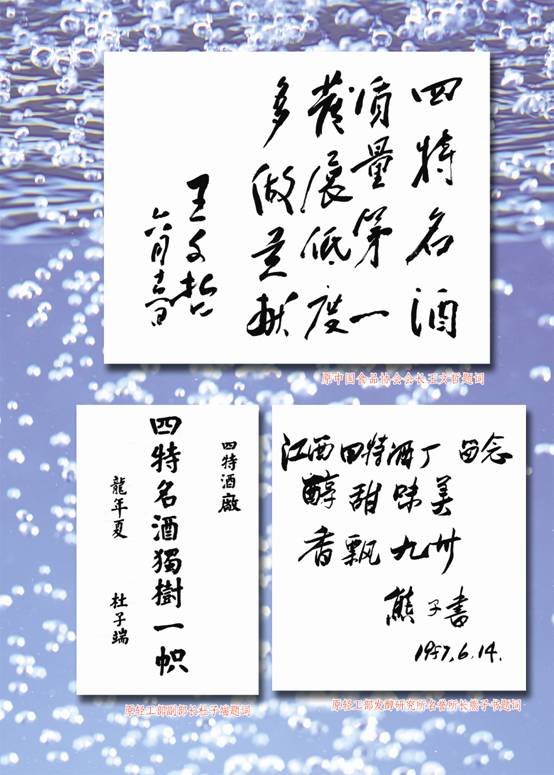 四特名酒
质量第一
發展低度
多做贡献
王文哲
六月
原中国食品协会会长王文哲题词
四特酒廠
四特名酒獨樹一幟
龍年夏 杜子端
原轻工部副部长杜子端题词
江西四特酒厂 留念
醇甜味美
香飘九州
熊子書
1987.6.14.
原轻工部发酵研究所名誉所长熊子书题词